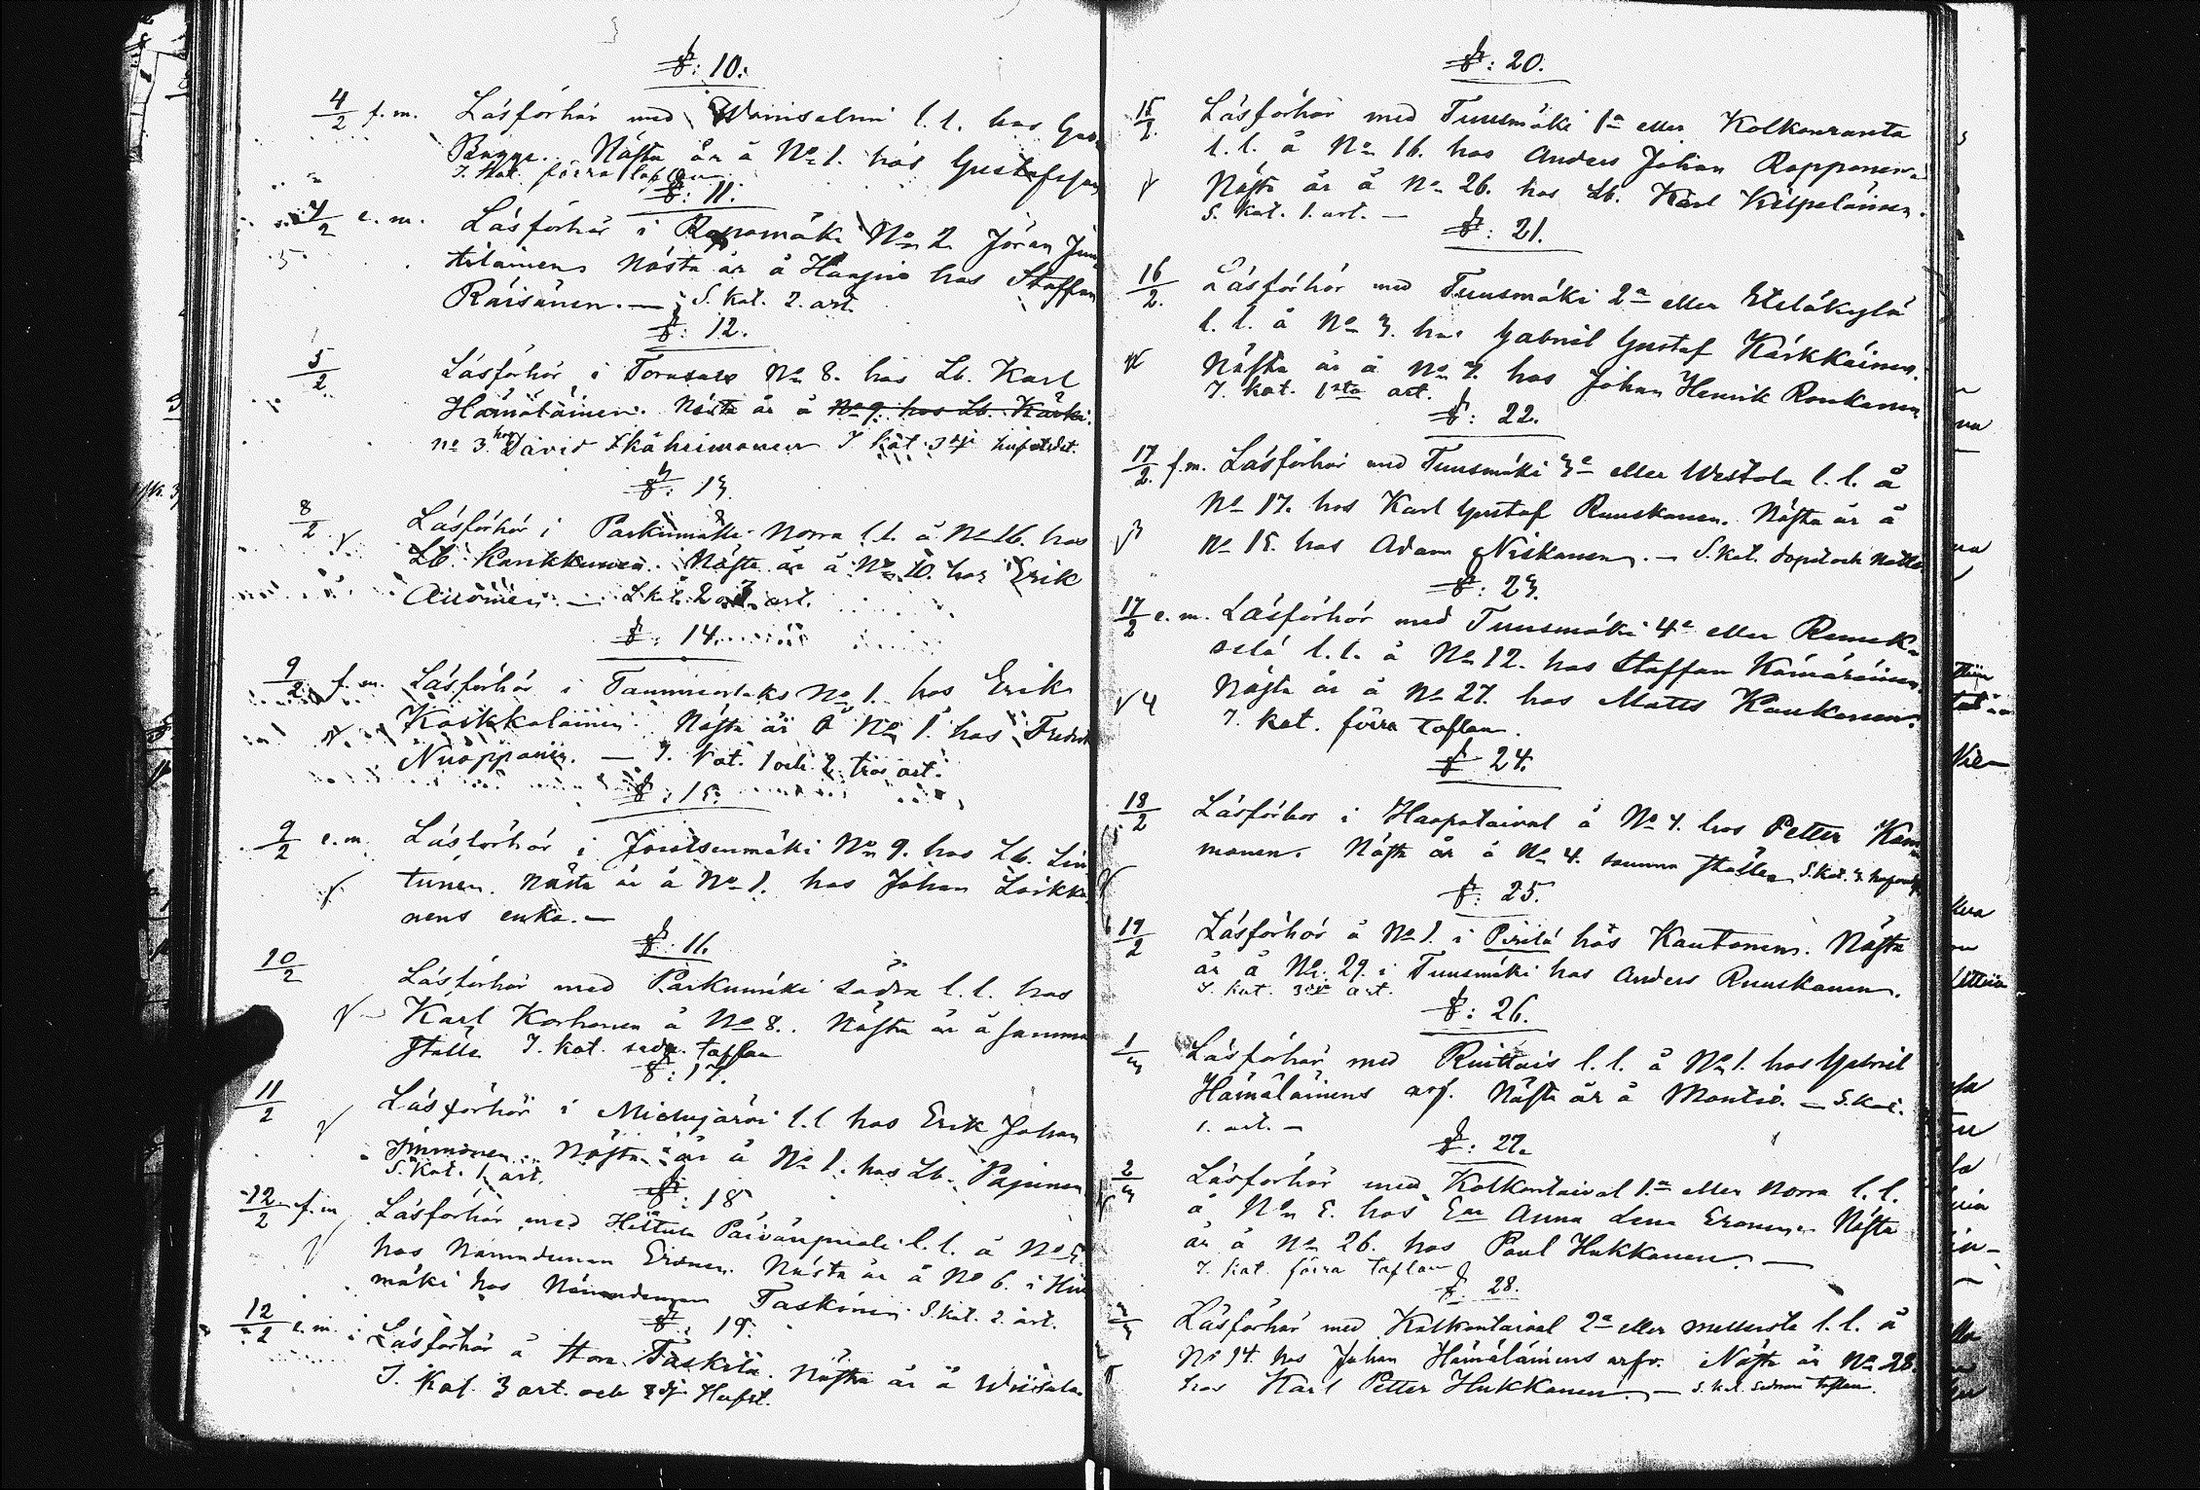 §: 10.
4/2 f.m. Läsförhör med Warisalmi l.l. hos
Bagge. Nästa år å No 1. hos Gustafsson
I. Kat. förra taflan
§: 11.
4/2 e.m. Läsförhör i Repomäki No 2 Jöran Jun-
tilainen. Nästa år å Haapio hos Staffan
Räisänen. — S. Kat. 2. art.
§: 12.
5/2 Läsförhör i Torasalo No 8. hos Lb. Karl
Hämäläinen. Nästa år å No 9. hos Lb. Kärki.
no 3 hos David Ikäheimonen I Kat. 3dje hufstdst.
§: 13.
8/2 Läsförhör i Parkumäki Norra l.l. å No 16. hos
Lb. Kankkunen. Nästa år å No 10. hos Erik
Auvinen. — S. kat. 2 art.
§: 14.
9/2 f.m. Läsförhör i No 1. hos Erik
Kaikkalainen. Nästa år å No 1. hos Fredrik
Nuopponen. — I. Kat. 1 och 2 tros art.
§: 15.
9/2 e.m. Läsförhör i No 9. hos Lb. Lin
tunen. Nästa år å No 1. hos Johan Loikka
nens enka. —
§: 16.
10/2 Läsförhör med Parkumäki södra l.l. hos
Karl Korhonen å No 8. Nästa år å samma
ställe I. Kat. sedn. taflan
§: 17.
11/2 Läsförhör i l.l hos Erik Johan
Immonen. Nästa år å No 1. hos Lb. Pajunen
S. Kat. 1 art.
§: 18
12/2 f.m Läsförhör med Päivänpuoli l.l. å No 5.
hos Nämndeman Eronen. Nästa år å No 6. i
mäki hos Nämndeman Taskinen S. kat. 2. art.
§: 19.
12/2 e.m. Läsförhör å Hov. Taskila. Nästa år å
I. Kat. 3 art. och 3dj Hufst.
§: 20.
15/2. Läsförhör med Tuusmäki 1a eller Kolkonranta
l.l. å No 16. hos Anders Johan Rapponen.
Nästa år å No 26. hos Lb. Karl Kilpeläinen.
S. Kat. 1. art. —
§: 21.
16/2. Läsförhör med Tuusmäki 2a eller Eteläkylä
l.l. å No 3. hos Gabriel Gustaf Kärkkäinen.
Nästa år å No 7. hos Johan Henrik Ronkanen
I. Kat. 1sta art.
§: 22.
17/2. f.m. Läsförhör med Tuusmäki 3e eller Westola l.l. å
No 17. hos Karl Gustaf Ruuskanen. Nästa år å
No 15. hos Adam Niskanen. — S. kat. dopet och
§: 23.
17/2 e.m. Läsförhör med Tuusmäki 4e eller
selä l.l. å No 12. hos Staffan Kämäräinen.
Nästa år å No 27. hos Matts Kaukonen.
I. Kat. förra taflan.
§ 24.
18/2 Läsförhör i Haapataival å No 4. hos Petter
monen. Nästa år å No 4. samma ställe
§: 25.
19/2 Läsförhör å No 1. i Pirilä hos Kautonen. Nästa
år å No. 29. i Tuusmäki hos Anders Ruuskanen.
I. Kat. 3dje art.
§: 26.
1/3 Läsförhör med Ruittais l.l. å No 1. hos Gabriel
Hämäläinens arf. Nästa år å Montio. — S. Kat.
1. art. —
§: 27.
2/3 Läsförhör med Kolkontaival 1.a eller Norra l.l.
å No 5. hos Ean Anna Lena Eronen. Nästa
år å No 26. hos Paul Hukkanen. —
I. Kat. förra taflan
§. 28.
2/3 Läsförhör med Kolkontaival 2a eller mellersta l.l. å
No 14. hos Johan Hämäläinens arfv. Nästa år No 28.
hos Karl Petter Hukkanen. — S. kat. sednare taflan.